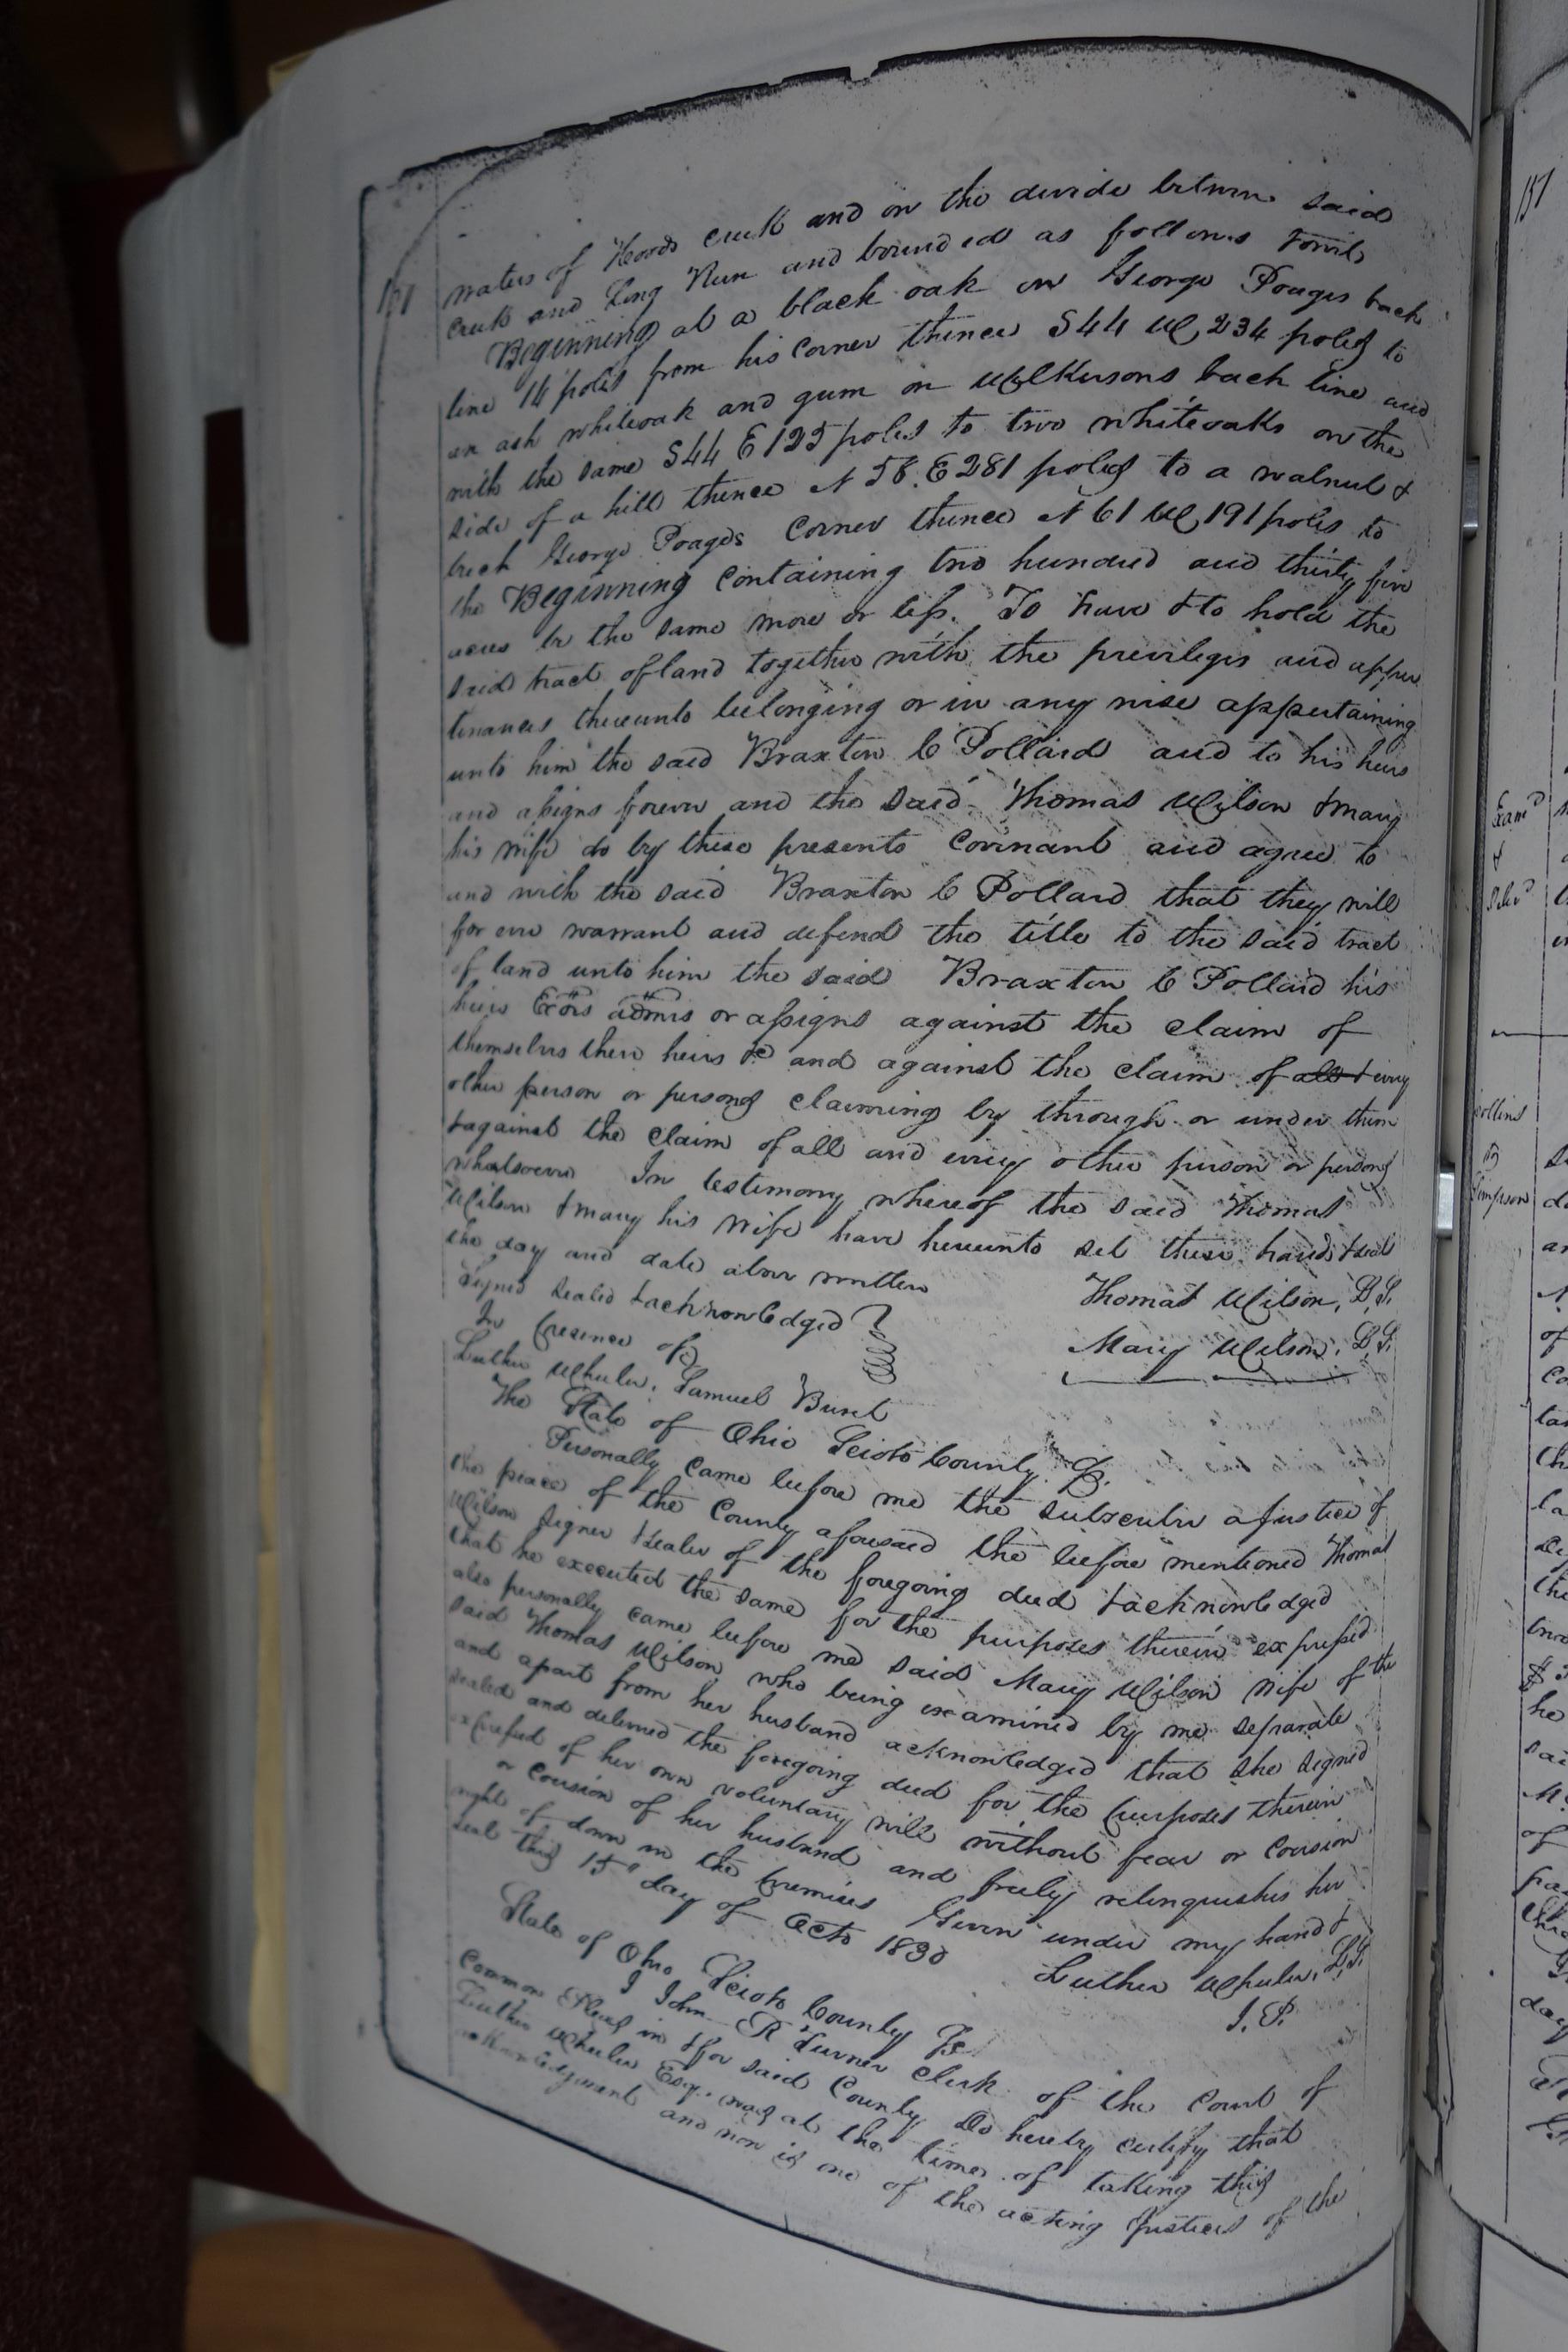 151
waters of Hoods creek and on the devide between said
creek and Long Run and bounded as follows towit
Beginning at a black oak on George Poages back
line 14 poles from his corner thence S44 W 234 poles to
an ash whiteoak and gum on Wilkersons back line and
with the same S44 E 125 poles to two whiteoaks on the
side of a hill thence N 58. E 281 poles to a walnut &
beech George Poages corner thence N 61 W 191 poles to
the Beginning containing two hundred and thirty five
acres be the same more or less. To have & to hold the
said tract of land together with the privileges and appur
tenances thereunto belonging or in any wise appertaining
unto him the said Braxton C Pollard and to his heirs
and assigns forever and the said Thomas Wilson & Mary
his wife do by these presents covinant and agree to
and with the said Braxton C Pollard that they will
for ever warrant and defend the title to the said tract
of land unto him the said Braxton C Pollard his
heirs Exors admrs or assigns against the claim of
themselves their heirs &c and against the claim of all & every
other person or persons claiming by through or under them
& against the claim of all and every other person or persons
whatsoever In testimony whereof the said Thomas
Wilson & Mary his wife have hereunto set their hands & seal
the day and date above written
Signed sealed & acknowledged Thomas Wilson, L,S,
In presence of Mary Wilson, L,S,
Luther Wheeler, Samuel Burt
The State of Ohio Scioto County Ss.
Personally came before me the subscriber a justice of
the peace of the County aforesaid the before mentioned Thomas
Wilson signer & sealer of the foregoing deed & acknowledged
that he executed the same for the purposes therein expressed
also personally came before me said Mary Wilson wife of the
said Thomas Wilson who being examined by me separate
and apart from her husband acknowledged that she signed
sealed and delivered the foregoing deed for the purposes therein
expressed of her own voluntary will without fear or coersion
or coersion of her husband and freely relinquishes her
right of dower in the premises Given under my hand &
seal this 15" day of Octo 1830 Luther Wheeler, L,S,
J. P.
State of Ohio Scioto County Ss
I John R Turner Clerk of the Court of
Common Pleas in & for said County Do hereby certify that
Luther Wheeler Esqr. was at the time of taking this
acknowledgment and now is one of the acting Justices of the
151
Exam'd
&
Deliv'd
Collins
Simpson